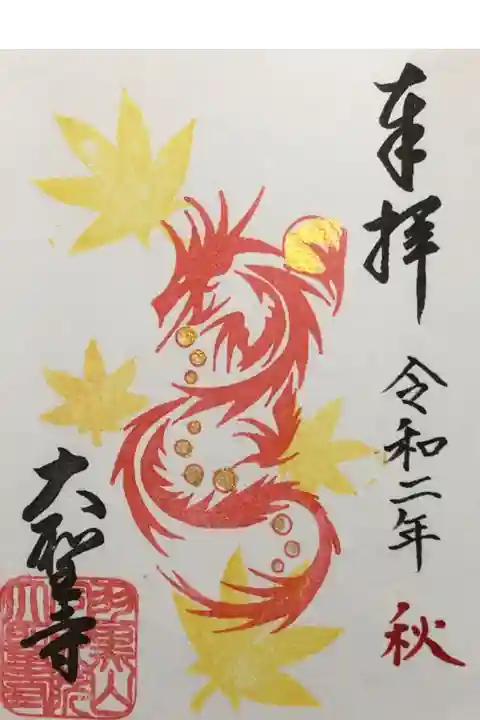 奉拝
令和二年
秋
大聖寺